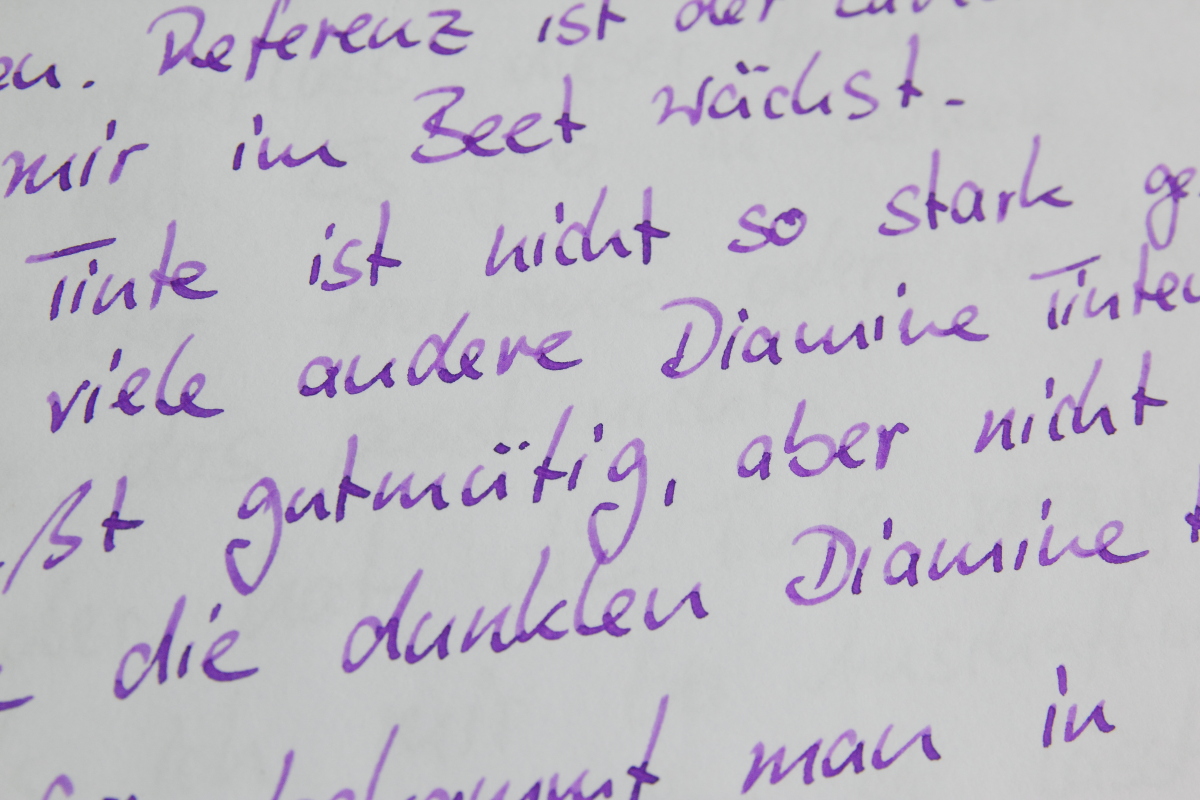 en. Referenz ist der
mir im Beet wächst.
Tinte ist nicht so stark ge
viele andere Diamine Tinten
ßt gutmütig, aber nicht
die dunklen Diamine
bekommt man in